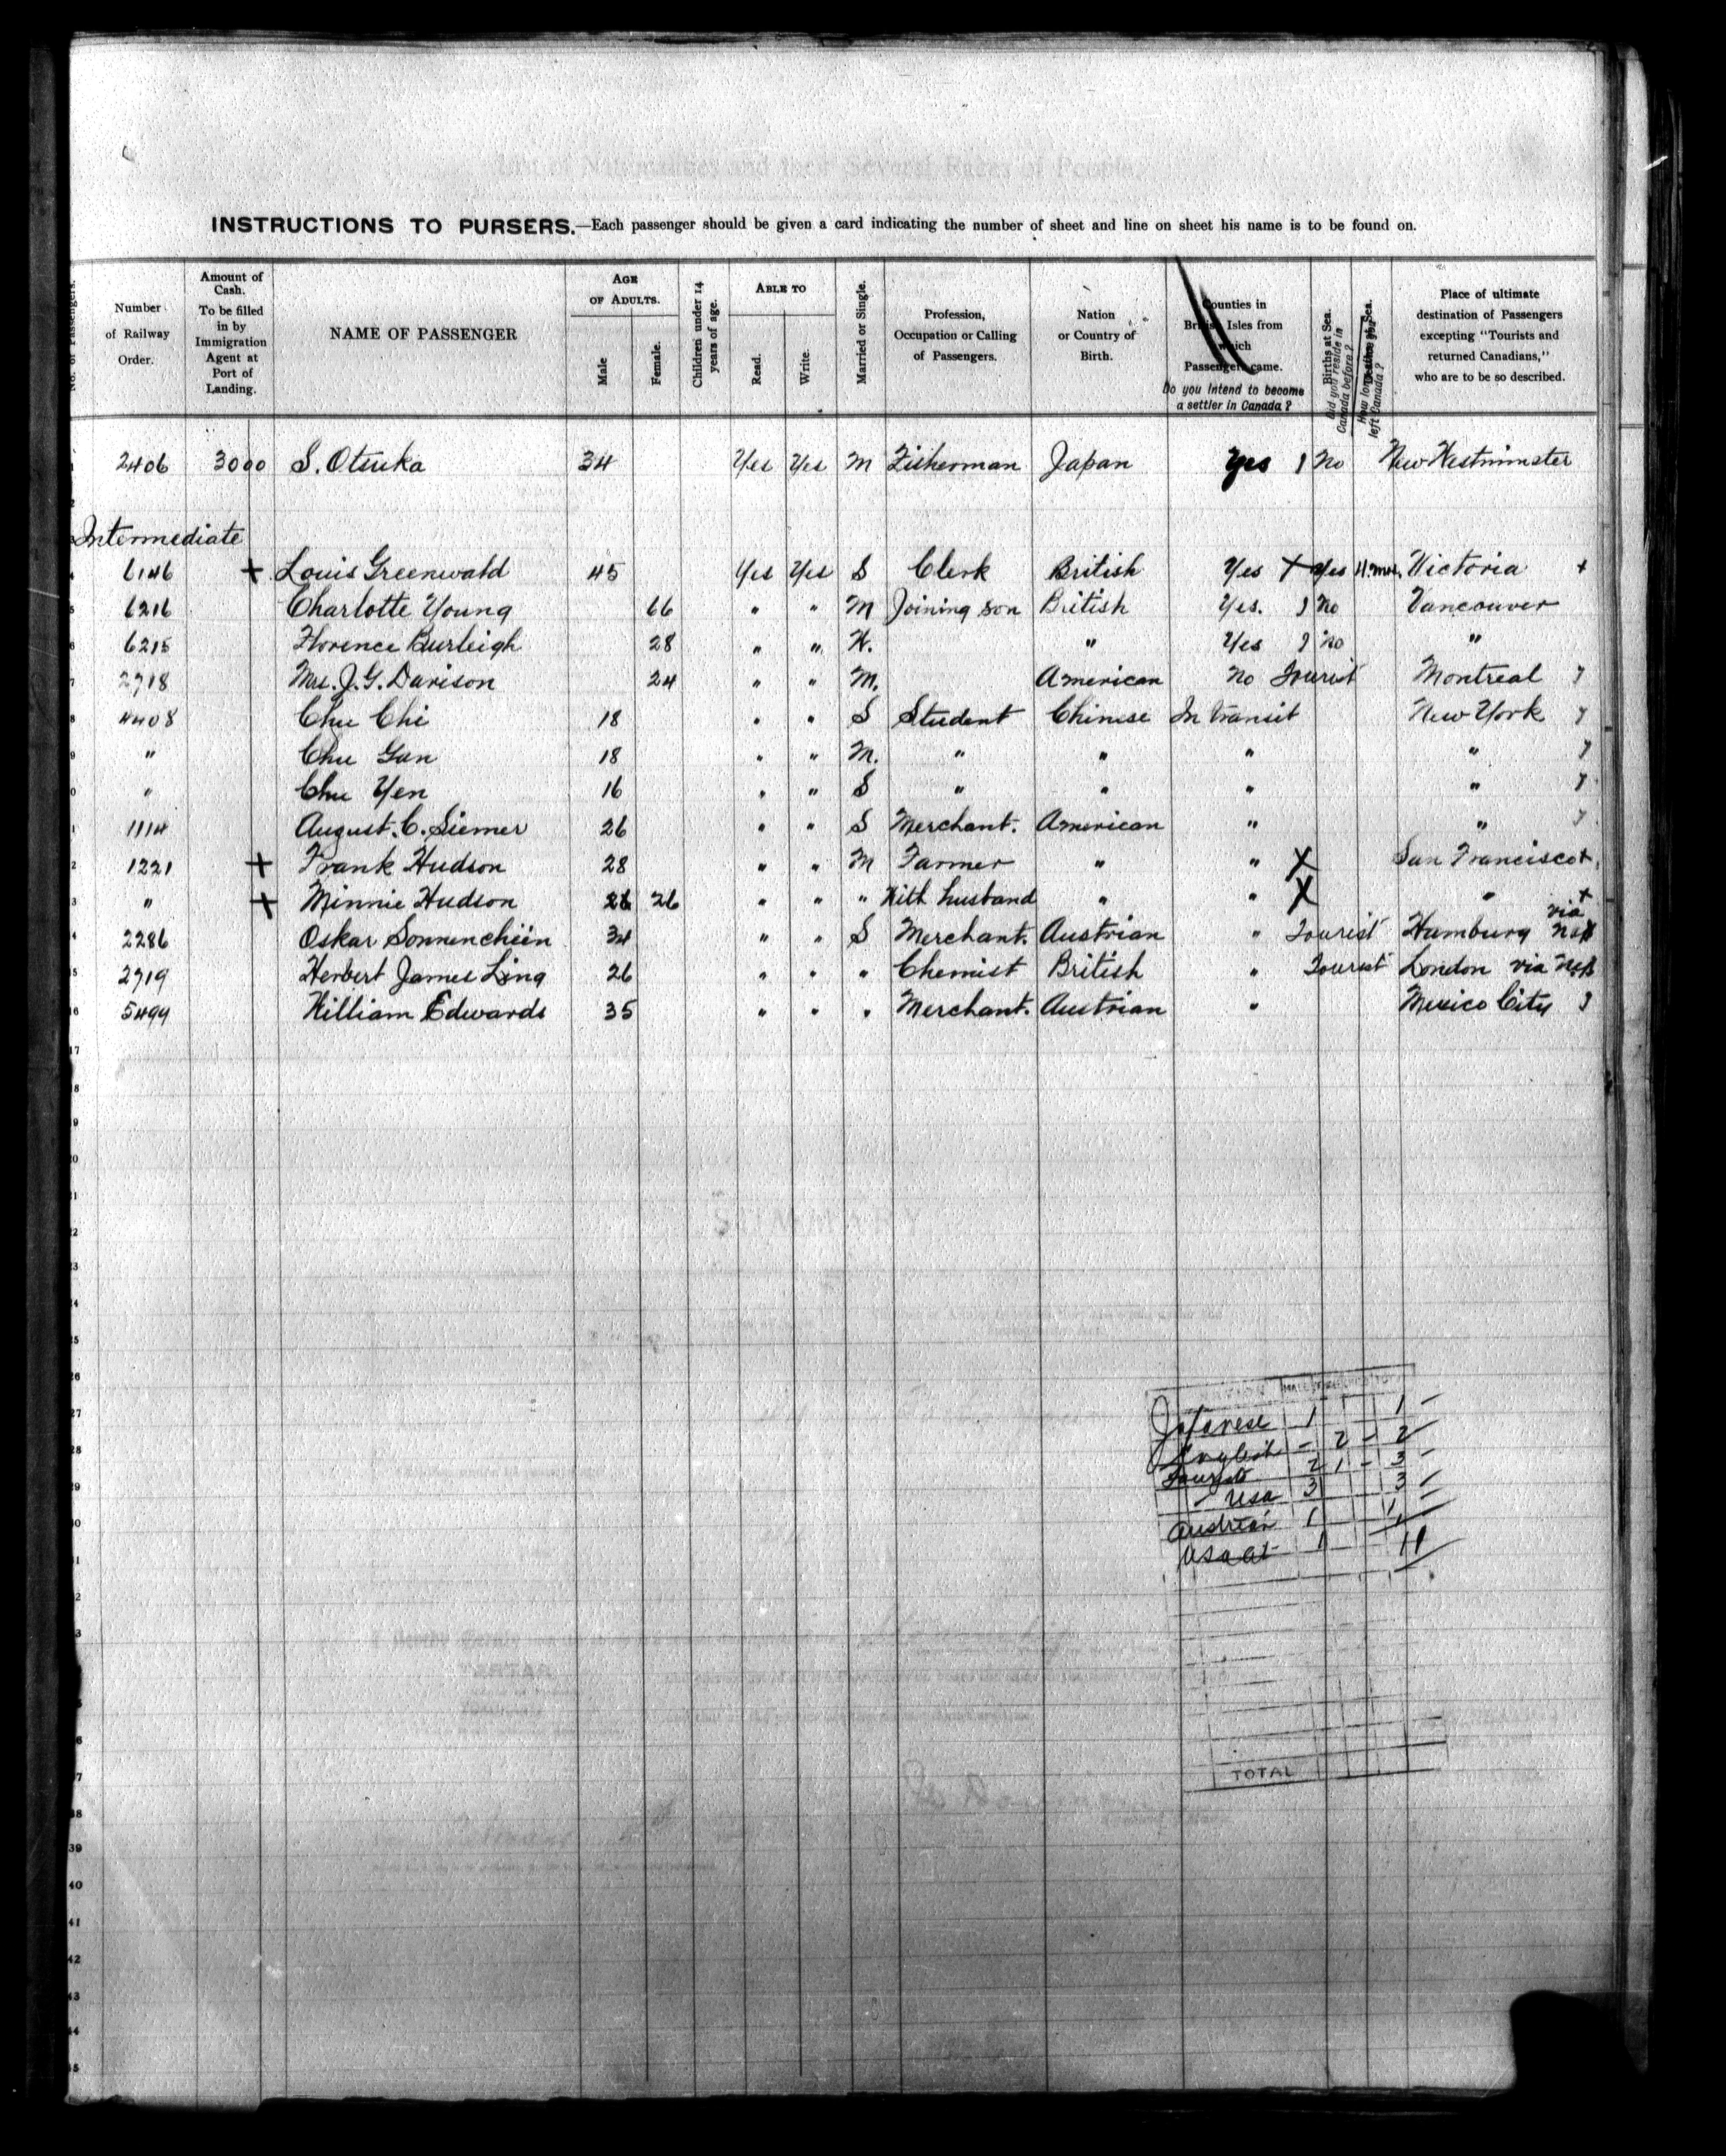 INSTRUCTIONS TO PURSERS.—Each passenger should be given a card indicating the number of sheet and line on sheet his name is to be found on.
No. of Passengers.
Number of Railway Order.
Amount of Cash. To be filled in by Immigration Agent at Port of Landing.
NAME OF PASSENGER
AGE OF ADULTS.
Male
Female.
Children under 14 years of age.
ABLE TO
Read.
Write.
Married or Single.
Profession, Occupation or Calling of Passengers.
Nation or Country of Birth.
Counties in British Isles from which Passengers came.
Do you intend to become a settler in Canada?
Births at Sea.
Did you reside in Canada before?
How long since you left Canada?
Place of ultimate destination of Passengers excepting "Tourists and returned Canadians," who are to be so described.
2406 3000 S. Otsuka 34 Yes Yes M Fisherman Japan Yes 1 No New Westminster
2
Intermediate
6146 + Louis Greenwald 45 Yes Yes S Clerk British Yes + Yes Victoria +
5 6216 Charlotte Young 66 " " M Joining son British Yes. 1 No Vancouver
6 6215 Florence Burleigh 28 " " W. " Yes 1 No "
7 2718 Mrs. J. G. Davison 24 " " M. American No Tourist Montreal
8 4408 Chu Chi 18 " " S Student Chinese In transit New York
9 " Chu Gan 18 " " M. " " " "
0 " Chu Yen 16 " " S " " " "
1 1114 August. C. Siemer 26 " " S Merchant. American " "
2 1221 + Frank Hudson 28 " " M Farmer " " X San Francisco +
3 " + Minnie Hudson 26 " " " With husband " " X " +
4 2286 Oskar Sonnenchien 34 " " S Merchant. Austrian " Tourist Hamburg via
5 2719 Herbert James Ling 26 " " " Chemist British " Tourist London via
6 5499 William Edwards 35 " " " Merchant. Austrian " Mexico City
17
18
19
20
21
22
23
24
25
26
27
28
29
30
31
SUMMARY
Japanese 1 1
English - 2 - 2
Tourists 2 1 - 3
- USA 3 3
Austrian 1 1
11
TOTAL
38
39
40
41
42
43
44
45